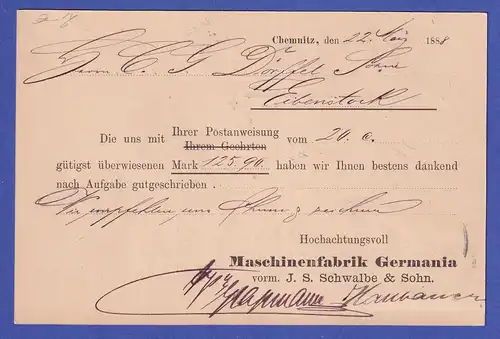 Chemnitz, den 22. Mai 1888
Herrn C. G. Dörffel Söhne
Eibenstock
Die uns mit Ihrer Postanweisung vom 20. c.
Ihrem Geehrten
gütigst überwiesenen Mark 125.90. haben wir Ihnen bestens dankend
nach Aufgabe gutgeschrieben.
Wir empfehlen uns Ihnen
Hochachtungsvoll
Maschinenfabrik Germania
vorm. J. S. Schwalbe & Sohn.